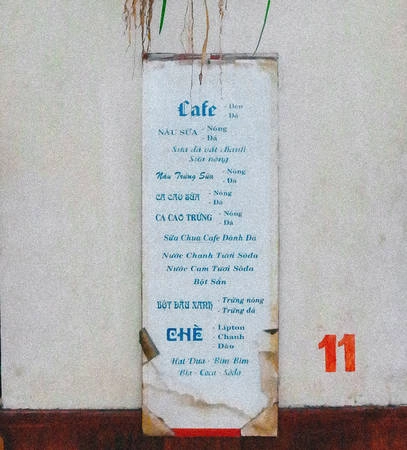 Cafe - Đen
- Đá
NÂU SỮA - Nóng
- Đá
Sữa đá vắt chanh
Sữa nóng
Nâu Trứng Sữa - Nóng
- Đá
CA CAO SỮA - Nóng
- Đá
CA CAO TRỨNG - Nóng
- Đá
Sữa Chua Cafe Đánh Đá
Nước Chanh Tươi Sôda
Nước Cam Tươi Sôda
Bột Sắn
BỘT ĐẬU XANH - Trứng nóng
- Trứng đá
CHÈ - Lipton
- Chanh
- Dâu
Hạt Dưa - Bim Bim
Bia - Coca - Sôda
11